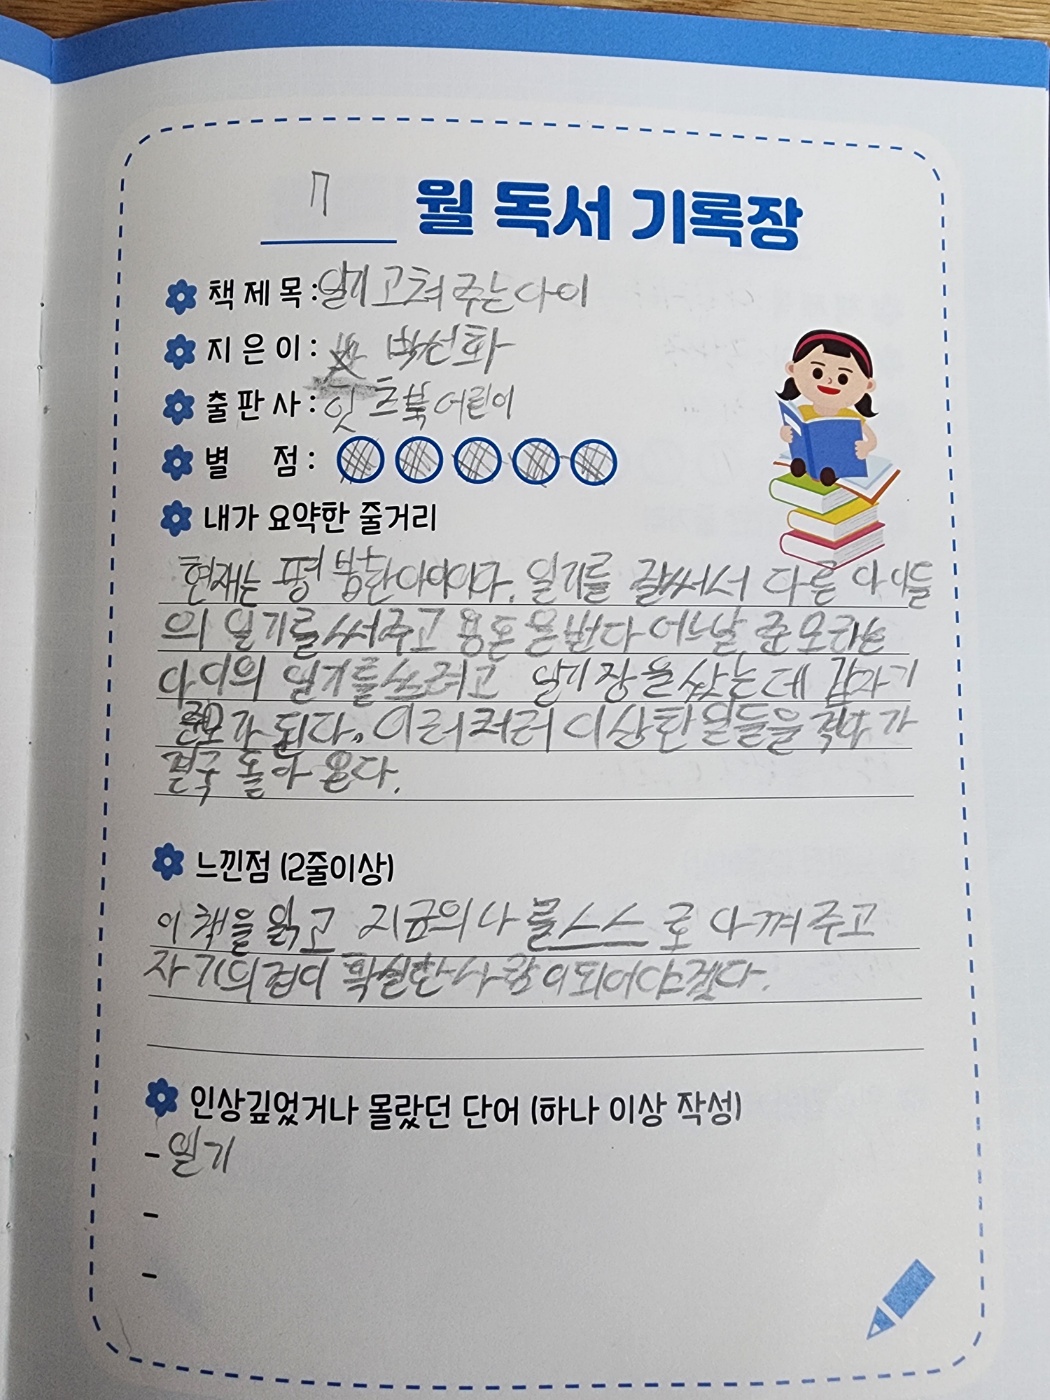 7 월 독서 기록장
책 제 목 : 일기 고쳐 주는 아이
지 은 이 : 박선화
출 판 사 : 잇츠북어린이
별 점 :
내가 요약한 줄거리
현재는 평범한아이이다. 일기를 잘써서 다른 아이들
의 일기를써주고 용돈을번다 어느날 준모라는
아이의 일기를쓰려고 일기장을샀는데 갑자기
준모가 된다. 이러쿵저러 이상한일들을 하다가
결국 돌아 온다.
느낀점 (2줄이상)
이 책을 읽고 지금의나 를스스로 아껴주고
자기의견이 확실한사람이되어야겠다.
인상깊었거나 몰랐던 단어 (하나 이상 작성)
- 일기
-
-